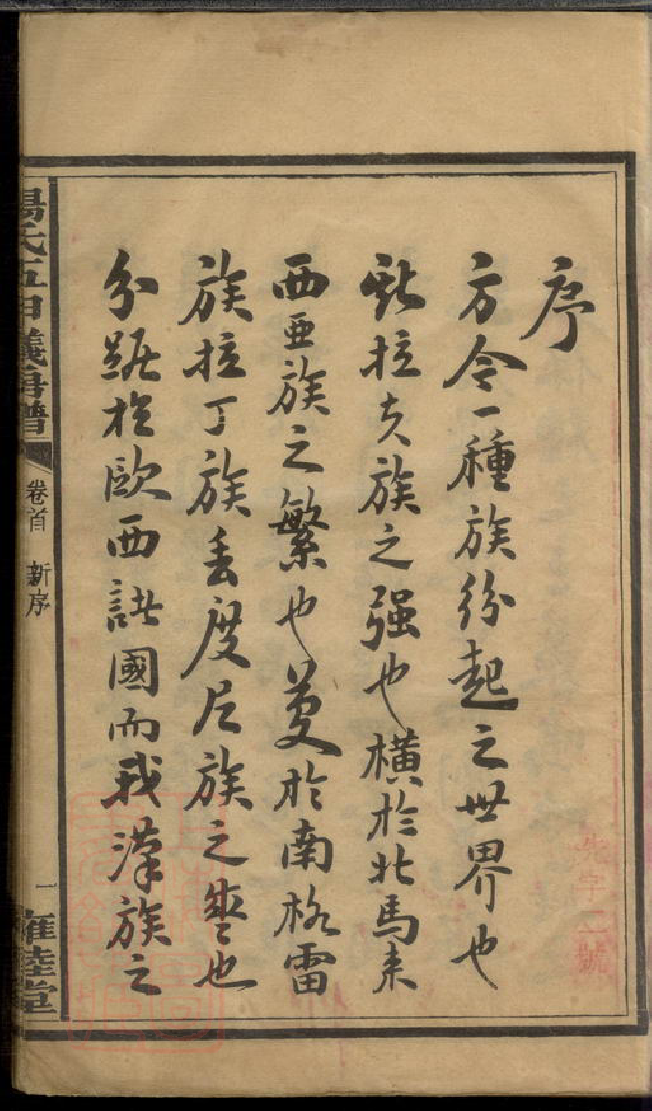 序
方今一種族紛起之世界也
斯拉夫族之强也橫於北馬來
西亜族之繁也蔓於南格雷
族拉丁族丟度尼族之盛也
分踞於歐西諸國而我漢族之
卷首 新序
一 雍睦堂
先字二號